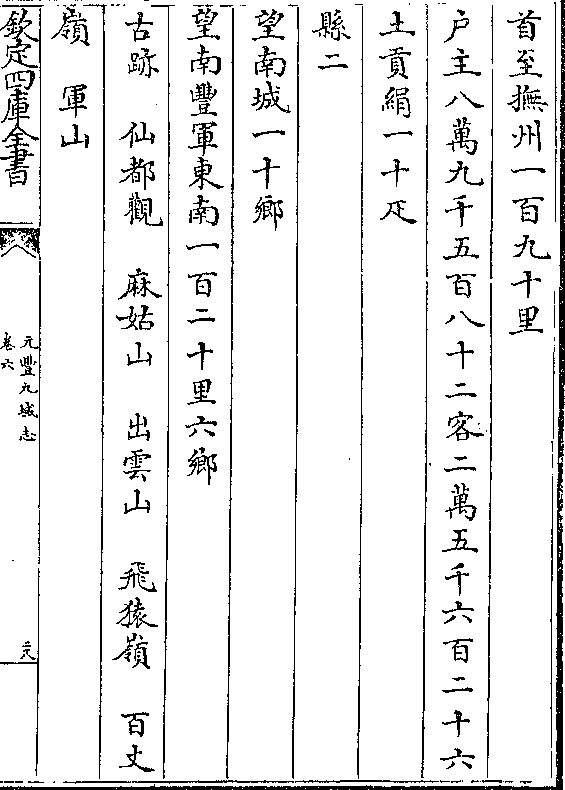 首至撫州一百九十里
户主八萬九千五百八十二客二萬五千六百二十六
土貢絹一十疋
縣二
望南城一十鄉
望南豐軍東南一百二十里六鄉
古跡　仙都觀　麻姑山　出雲山　飛猿嶺　百丈
嶺　軍山
欽定四庫全書
元豐九域志
卷六